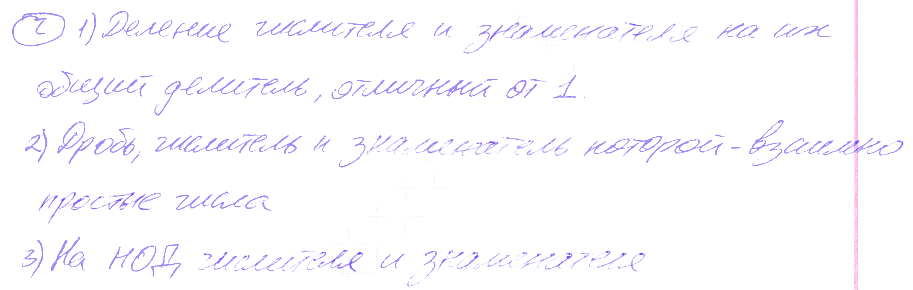 2 1) Деление числителя и знаменателя на их
общий делитель, отличный от 1.
2) Дробь, числитель и знаменатель которой - взаимно
простые числа
3) На НОД числителя и знаменателя